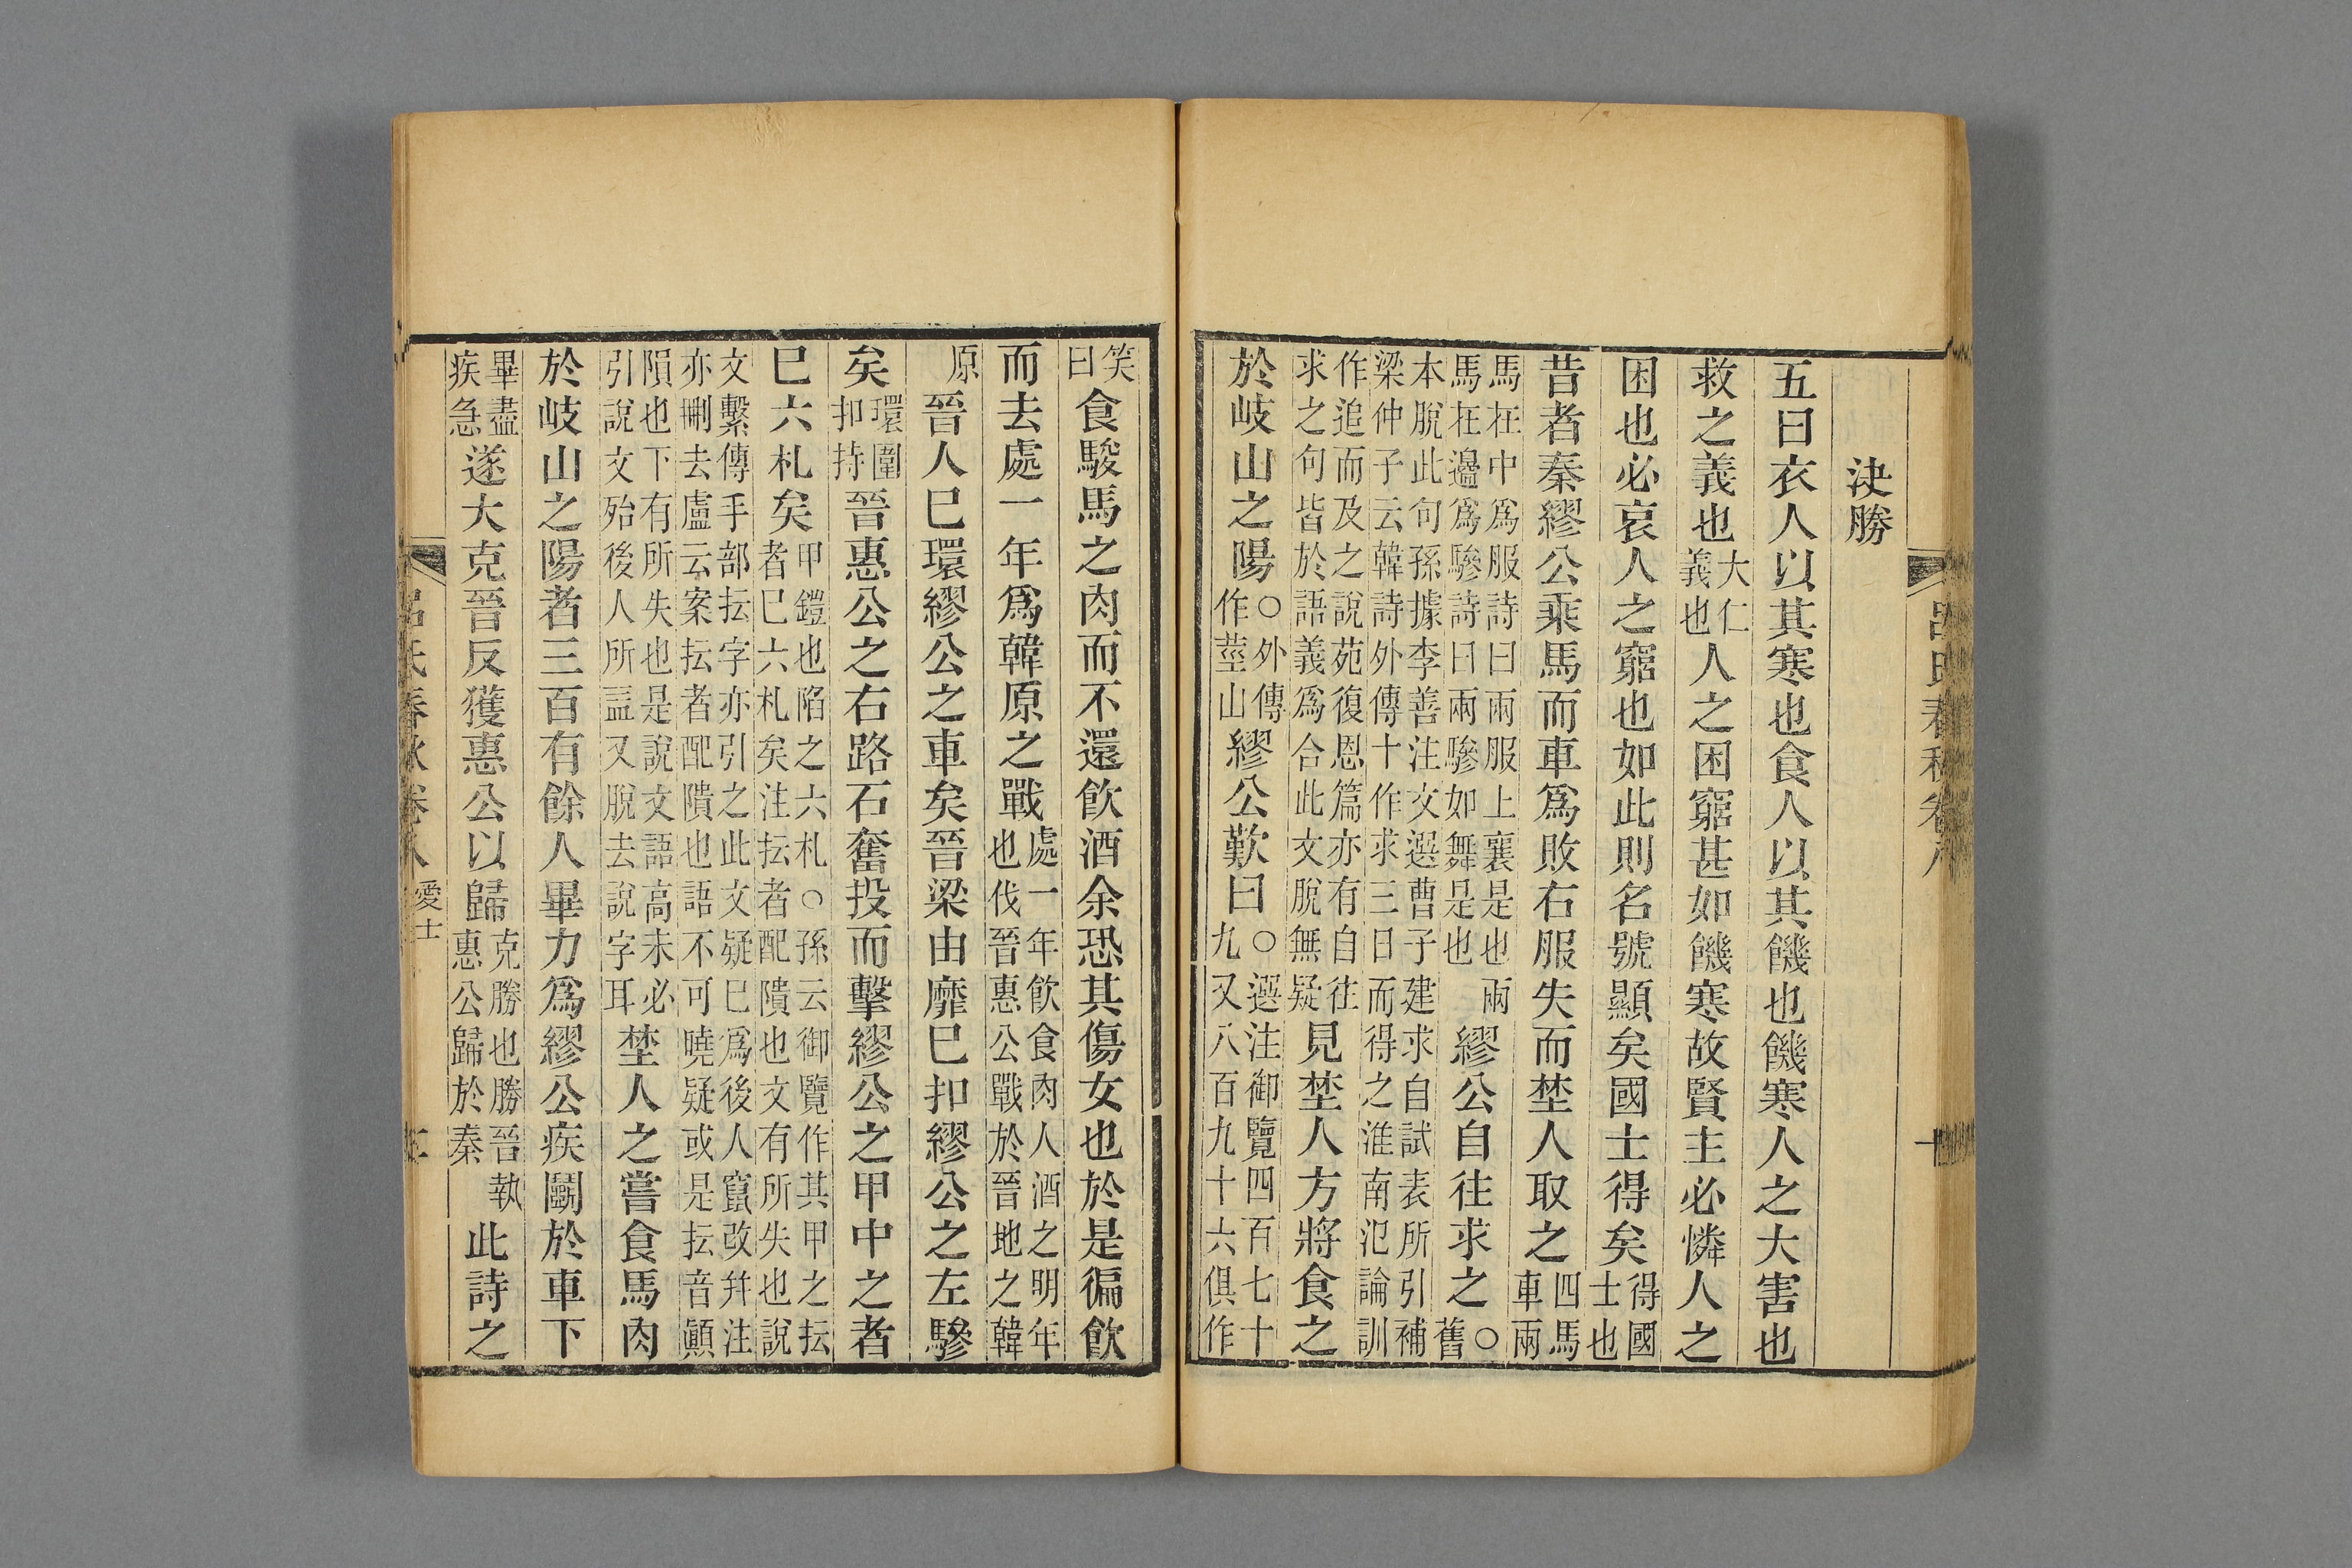 呂氏春秋卷八
十
決勝
五曰衣人以其寒也食人以其饑也饑寒人之大害也
救之義也大仁義也人之困窮甚如饑寒故賢主必憐人之
困也必哀人之窮也如此則名號顯矣國士得矣得國士也
昔者秦繆公乘馬而車爲敗右服失而埜人取之四馬車兩
馬在中爲服詩曰兩服上襄是也兩馬在邊爲驂詩曰兩驂如舞是也繆公自往求之○舊
本脫此句孫據李善注文選曹子建求自試表所引補梁仲子云韓詩外傳十作求三日而得之淮南氾論訓
作追而及之說苑復恩篇亦有自往求之句皆於語義爲合此文脫無疑見埜人方將食之
於岐山之陽○外傳作莖山繆公歎曰○選注御覽四百七十九又八百九十六俱作
笑曰食駿馬之肉而不還飲酒余恐其傷女也於是徧飲
而去處一年爲韓原之戰處一年飲食肉人酒之明年也伐晉惠公戰於晉地之韓
原晉人已環繆公之車矣晉梁由靡已扣繆公之左驂
矣環圍扣持晉惠公之右路石奮投而擊繆公之甲中之者
已六札矣甲鎧也陷之六札○孫云御覽作其甲之抎者已六札矣注抎者配隤也文有所失也說
文繫傳手部抎字亦引之此文疑已爲後人竄改幷注亦刪去盧云案抎者配隤也語不可曉疑或是抎音顚
隕也下有所失也是說文語高未必引說文殆後人所益又脫去說字耳埜人之嘗食馬肉
於岐山之陽者三百有餘人畢力爲繆公疾鬭於車下
畢盡疾急遂大克晉反獲惠公以歸克勝也勝晉執惠公歸於秦此詩之
呂氏春秋卷八 愛士